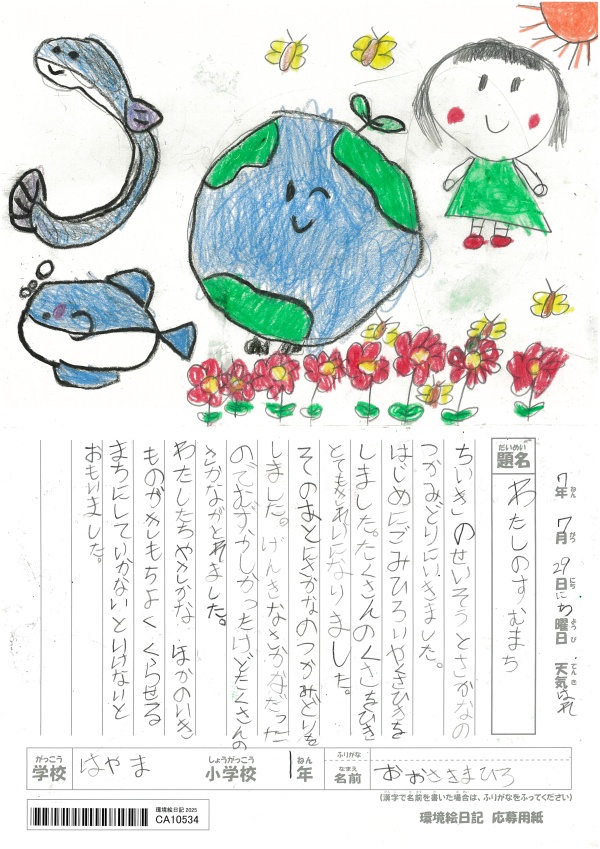 7年 7月 29日 にち曜日 天気 はれ
題名 わたしのすむまち
ちいきのせいそうとさかなの
つかみどりにいきました。
はじめにごみひろいやくさひきを
しました。たくさんのくさをひき
とてもきれいになりました。
そのあとにさかなのつかみどりを
しました。げんきなさかなだった
のでむずかしかったけどたくさんの
さかながとれました。
わたしたちやさかな ほかのいき
ものがきもちよく くらせる
まちにしていかないといけないと
おもいました。
学校 はやま 小学校 1年 名前 おおさきまひろ
(漢字で名前を書いた場合は、ふりがなをふってください)
環境絵日記 2025
CA10534
環境絵日記 応募用紙